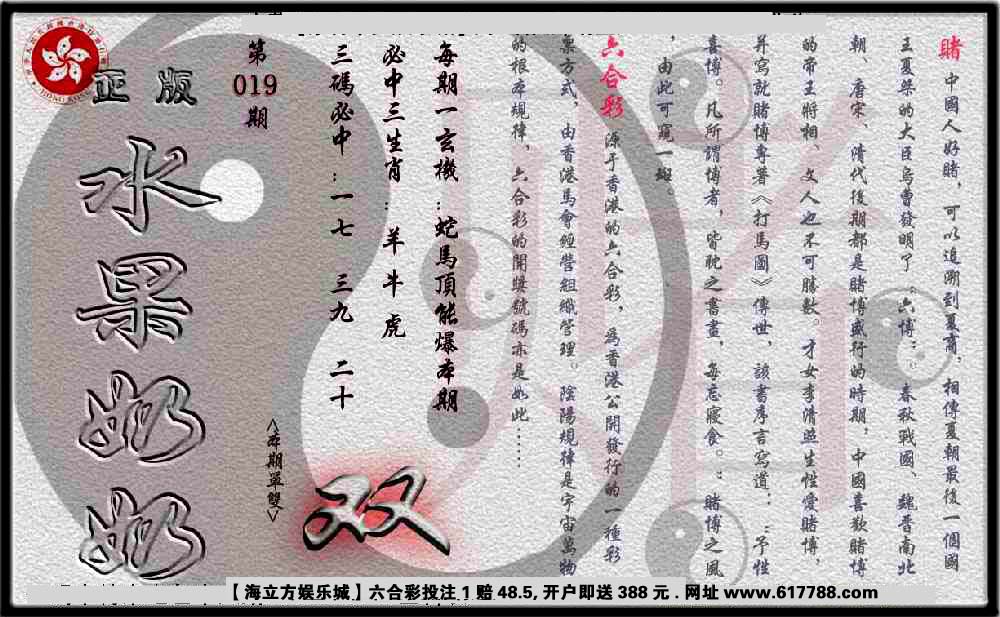 賭 中國人好賭，可以追溯到夏商，相傳夏朝最後一個國
王夏桀的大臣烏曹發明了“六博”；春秋戰國、魏晉南北
朝、唐宋、清代後期都是賭博盛行的時期，中國喜歡賭博
的帝王將相、文人也不可勝數。才女李清照生性愛賭博，
并寫就賭博專著《打馬圖》傳世，該書序言寫道：“予性
喜博。凡所謂博者，皆耽之晝晝，每忘寢食。”；賭博之風
，由此可窺一斑。
六合彩 源于香港的六合彩，為香港公開發行的一種彩
票方式，由香港馬會經營組織管理。陰陽規律是宇宙萬物
的根本規律，六合彩的開獎號碼亦是如此……
每期一玄機：蛇馬頂能爆本期
必中三生肖：羊牛虎
三碼必中：一七 三九 二十
第
019
期
<本期單雙>
双
正版
水果奶奶
HONG KONG
【海立方娱乐城】六合彩投注1赔48.5,开户即送388元.网址www.617788.com